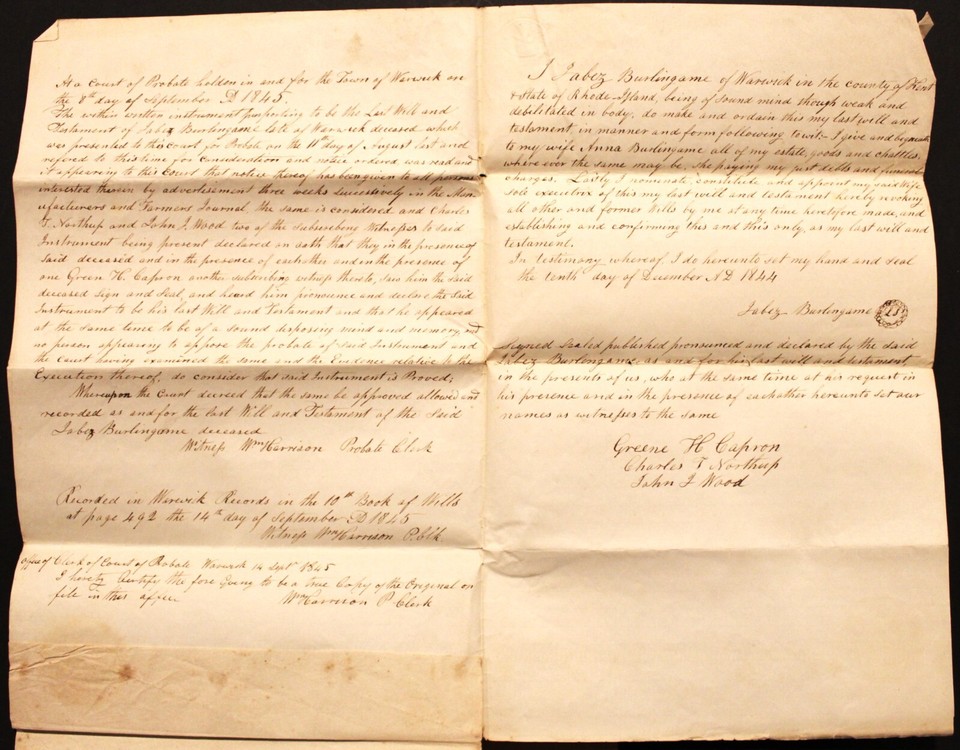 At a Court of Probate holden in and for the Town of Warwick on
the 8th day of September D 1845.
The within written instrument purporting to be the Last Will and
Testament of Jabez Burlingame late of Warwick deceased which
was presented to this Court for Probate on the 11th day of August last and
refered to this time for Consideration and notice ordered was read and
it appearing to this Court that notice thereof has been given to all persons
interested therein by advertisement three weeks successively in the Man
ufacturers and Farmers Journal, the same is considered and Charles
T. Northup and John J. Wood two of the subscribing Witnesses to said
Instrument being present declared on oath that they in the presence of
said deceased and in the presence of each other and in the presence of
one Green H. Capron another subscribing witness thereto, saw him the said
deceased Sign and Seal, and heard him pronounce and declare the said
Instrument to be his last Will and Testament and that he appeared
at the same time to be of a sound disposing mind and memory, and
no person appearing to oppose the probate of said Instrument and
the Court having examined the same and the Evidence relative to the
Execution thereof, do consider that said Instrument is Proved;
Whereupon the Court decreed that the same be approved allowed and
recorded as and for the last Will and Testament of the said
Jabez Burlingame deceased
Witness Wm Harrison Probate Clerk
Recorded in Warwick Records in the 10th Book of Wills
at page 492 the 14th day of September D 1845
Witness Wm Harrison P. Clk
Office of Clerk of Court of Probate Warwick 14 Sept 1845
I hereby Certify the fore going to be a true Copy of the Original on
file in this office Wm Harrison P. Clerk
I Jabez Burlingame of Warwick in the county of Kent
& State of Rhode Island, being of sound mind though weak and
debilitated in body, do make and ordain this my last will and
testament in manner and form following to wit - I give and bequeath
to my wife Anna Burlingame all of my estate, goods and chattles,
where ever the same may be, she paying my just debts and funeral
charges. Lastly I nominate, constitute and appoint my said Wife
sole executrix of this my last will and testament hereby revoking
all other and former Wills by me at any time heretofore made, and
establishing and confirming this and this only, as my last will and
testament.
In testimony whereof, I do hereunto set my hand and seal
the tenth day of December AD 1844
Jabez Burlingame LS
Signed sealed published pronounced and declared by the said
Jabez Burlingame as and for his last will and testament
in the presents of us, who at the same time at his request in
his presence and in the presence of each other hereunto set our
names as witnesses to the same
Greene H Capron
Charles T Northup
John J Wood